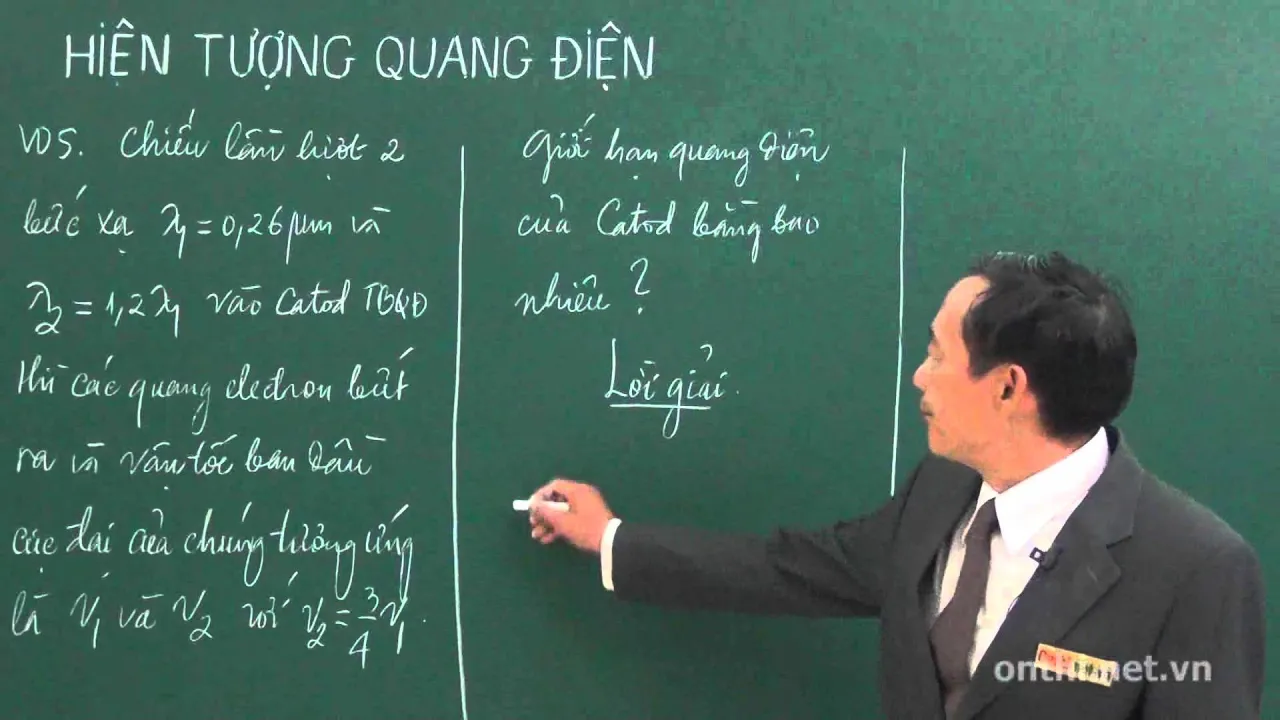 HIỆN TƯỢNG QUANG ĐIỆN
VD5. Chiếu lần lượt 2
bức xạ λ₁ = 0,26μm và
λ₂ = 1,2λ₁ vào Catod TBQĐ
thì các quang electron bứt
ra và vận tốc ban đầu
cực đại của chúng tương ứng
là v₁ và v₂ với v₂ = 3/4 v₁.
Giới hạn quang điện
của Catod bằng bao
nhiêu ?
Lời giải.
onthi.net.vn